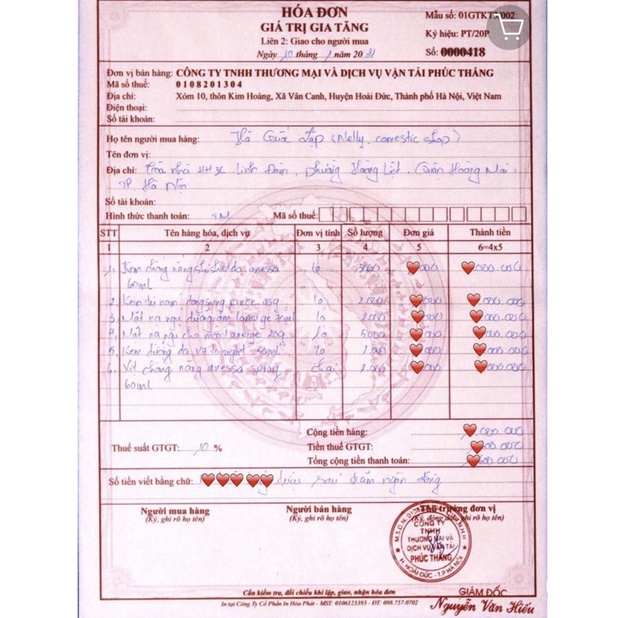 HÓA ĐƠN
GIÁ TRỊ GIA TĂNG
Liên 2: Giao cho người mua
Ngày 10 tháng 1 năm 20
Mẫu số: 01GTKT 002
Ký hiệu: PT/20P
Số: 0000418
Đơn vị bán hàng: CÔNG TY TNHH THƯƠNG MẠI VÀ DỊCH VỤ VẬN TẢI PHÚC THẮNG
Mã số thuế: 0108201304
Địa chỉ: Xóm 10, thôn Kim Hoàng, Xã Vân Canh, Huyện Hoài Đức, Thành phố Hà Nội, Việt Nam
Điện thoại:
Số tài khoản:
Họ tên người mua hàng: (Nelly comestic)
Tên đơn vị:
Địa chỉ: Tòa nhà Linh Đàm, phường Hoàng Liệt, Quận Hoàng Mai,
TP Hà Nội
Số tài khoản:
Hình thức thanh toán: TM Mã số thuế:
STT Tên hàng hóa, dịch vụ Đơn vị tính Số lượng Đơn giá Thành tiền
1 2 3 4 5 6=4x5
1. Kem chống nắng da anessa lọ 000 000.000
60ml
2 Kem trị nám dongsung lọ 000 000.000
3 Mặt nạ ngủ dưỡng ẩm laneige 70ml lọ 000 000.000
4 Mặt nạ ngủ cho môi laneige 20g lọ 5000 000 000.000
5 Kem dưỡng da 50ml lọ 000 000.000
6. Xịt chống nắng anessa spray chai 000 000.000
60ml
Cộng tiền hàng: 000.000
Thuế suất GTGT: 10 % Tiền thuế GTGT:
Tổng cộng tiền thanh toán:
Số tiền viết bằng chữ: triệu sáu trăm ngàn đồng
Người mua hàng Người bán hàng Thủ trưởng đơn vị
(Ký, ghi rõ họ tên) (Ký, ghi rõ họ tên)
CÔNG TY
TNHH
THƯƠNG MẠI VÀ
DỊCH VỤ VẬN TẢI
PHÚC THẮNG
H. HOÀI ĐỨC - T.P HÀ NỘI
GIÁM ĐỐC
Nguyễn Văn Hiếu
Cần kiểm tra, đối chiếu khi lập, giao, nhận hóa đơn
In tại Công ty Cổ Phần In Hòa Phát - MST: 0106123393 - ĐT: 098.757.0702